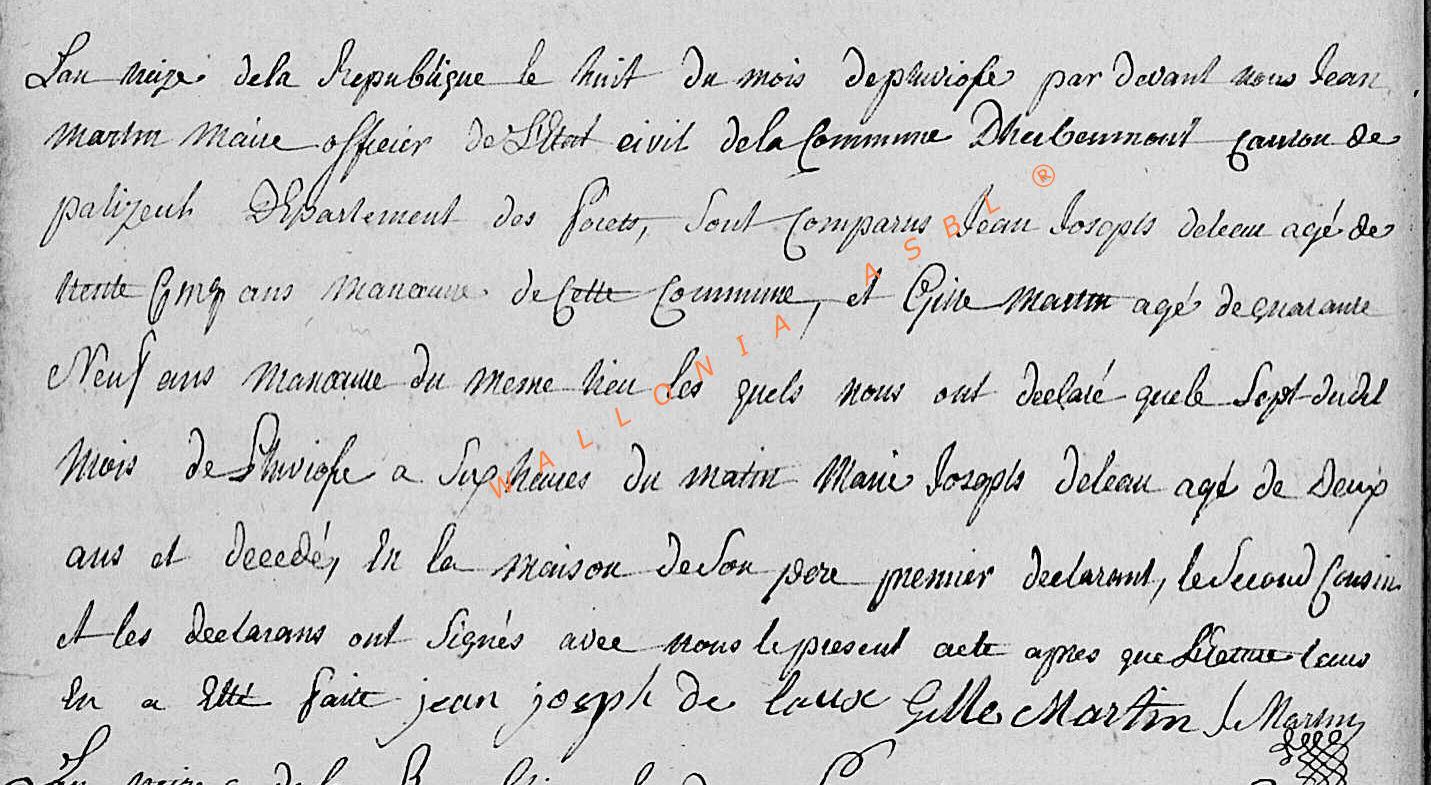 L'an treize de la Republique le huit du mois de pluviose par devant nous Jean
Martin Maire officier de L'Etat civil de la Commune Dherbeumont Canton de
palizeul DEpartement des forets, sont Comparus Jean Joseph deleau agé de
trente Cinq ans Manœuvre de Cette Commune, et Gille Martin agé de quarante
Neuf ans Manœuvre du meme lieu les quels nous ont declaré que le Sept dudit
Mois de Pluviose a Six heures du matin Marie Joseph deleau agé de Deux
ans et decedé, En la maison de Son pere premier declarant, le Second Cousin
et les declarans ont Signés avec nous le present acte apres que Lecture leurs
En a Etté faite jean joseph de laux Gille Martin J. Martin
WALLONIA ASBL ®